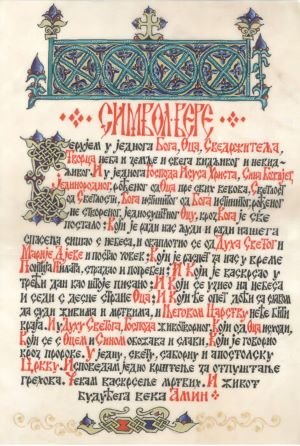 СИМВОЛ ВЕРЕ
Верујем у једнога Бога, Оца, Сведржитеља,
Творца неба и земље и свега видљивог и невид-
љивог. И у једнога Господа Исуса Христа, Сина Божијег,
Јединородног, рођеног од Оца пре свих векова. Светлост
од Светлости, Бога истинитог од Бога истинитог, рођеног
не створеног, једносушног Оцу, кроз Кога је све
постало: Који је ради нас људи и ради нашега
спасења сишао с небеса, и оваплотио се од Духа Светог и
Марије Дјеве и постао човек: Који је распет за нас у време
Понтија Пилата, страдао и погребен: И Који је васкрсао у
трећи дан као што је писано: И Који се узнео на небеса
и седи с десне стране Оца: И Који ће опет доћи са славом
да суди живима и мртвима, и Његовом Царству неће бити
краја. И у Духу Светога, Господа животворног, Који од Оца исходи,
Који се с Оцем и Сином обожава и слави, Који је говорио
кроз пророке. У једну, свету, саборну и апостолску
Цркву. Исповедам једно крштење за отпуштање
грехова. Чекам васкрсење мртвих. И живот
будућега века Амин